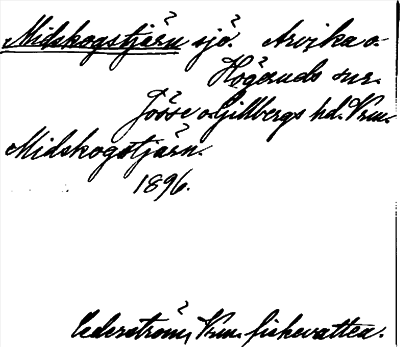 Midskogstjärn sjö. Arvika o.
Högeruds snr.
Jösse o Gillbergs hd. Vrm.
Midskogstjärn.
1896.
Cederström, Vrm. fiskevatten.